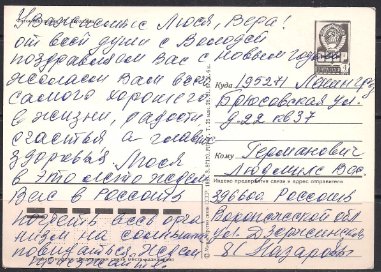 Уважаемые Люся, Вера!
от всей души с Володей
поздравляем Вас с Новым годом
желаем Вам всего
самого хорошего
в жизни, радости
счастья а главное
здоровья Люся
в это лето ждем
Вас в Россошь
на
Ждем
Куда 195271 Ленинград
Брюсовская ул.
д. 22 кв 37
Кому Германович
Людмиле Вас.
Индекс предприятия связи и адрес отправителя
396600 Россошь
Воронежской обл
ул. Дзержинского
81 Назаро